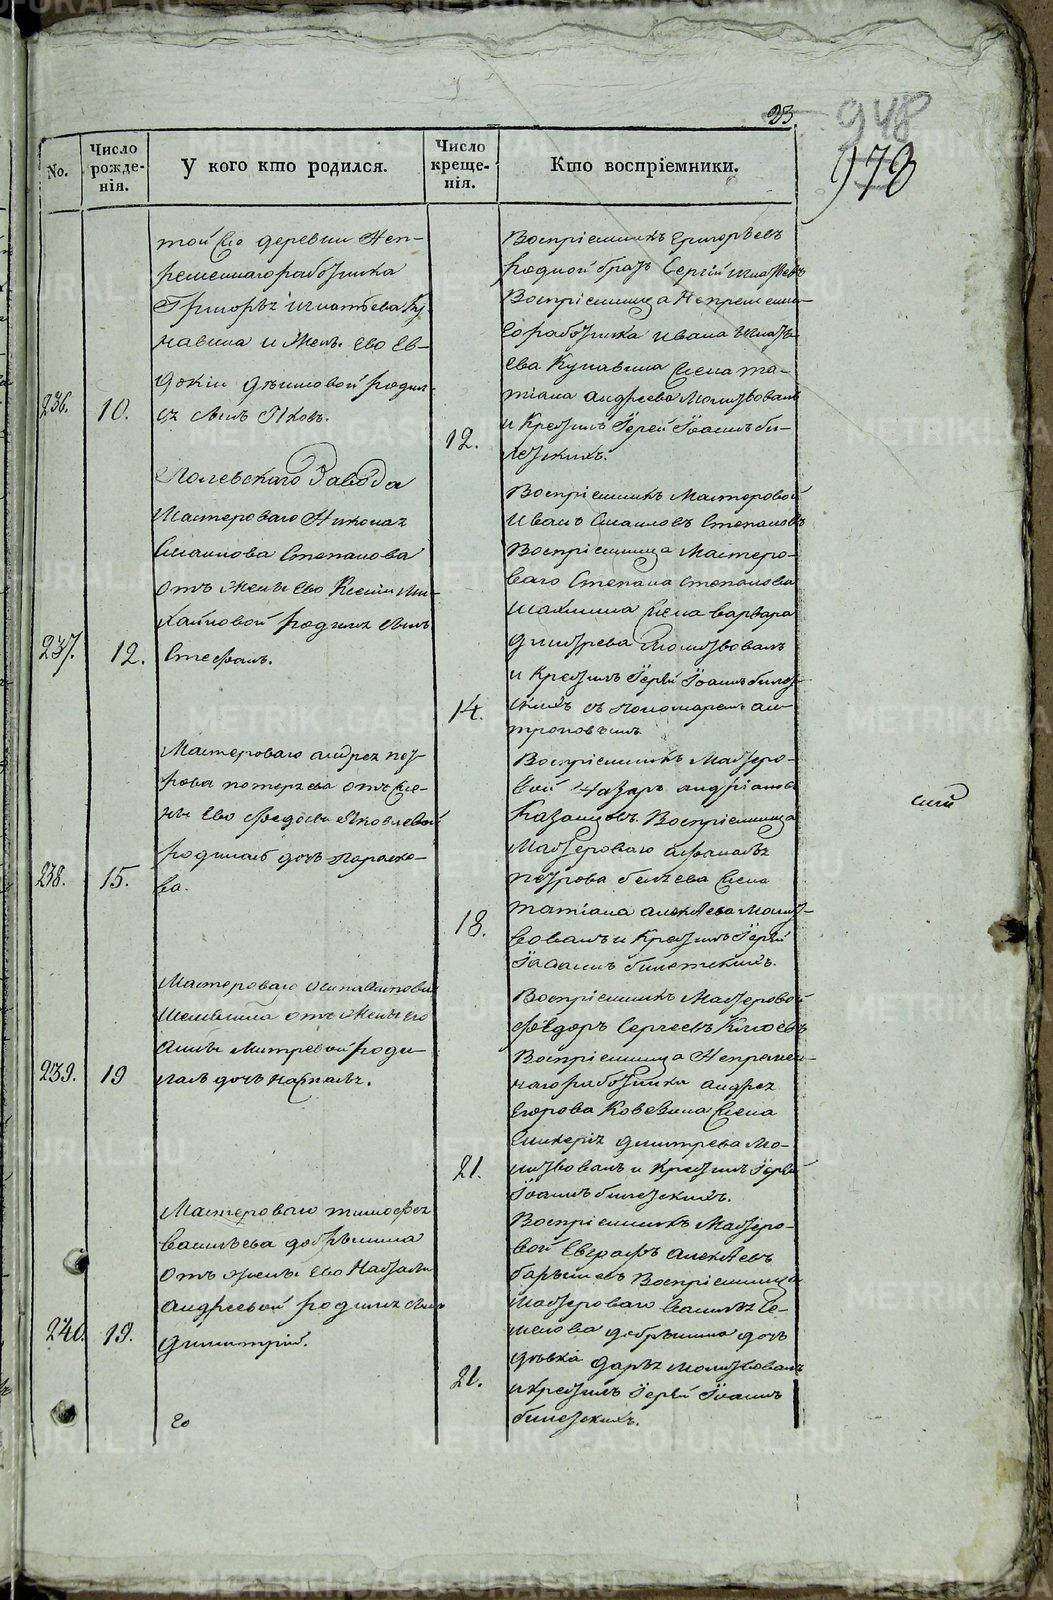 23.
948
978
No.
Число рожде-нія.
У кого кто родился.
Число креще-нія.
Кто воспріемники.
той же деревни Неп-
ременнаго работника
Григорья Игнатьева Ку-
навина и жены ево Ев-
докіи родил-
236. 10. ся сынъ Іяковъ.
12.
Воспріемникъ Григорьевъ
родной братъ Сергій Игнатьевъ
Воспріемница Непременна-
го работника Ивана Игнать-
ева Кунавина жена та-
тіана андреева Молитвовалъ
и Крестилъ Іерей Іоаннъ би-
летскихъ.
Полевскаго Завода
Мастероваго Николая
Степанова
отъ жены ево Ксеніи Ми-
хайловой родился сынъ
237. 12. Стефанъ.
14.
Воспріемникъ Мастеровой
Иванъ Степановъ
Воспріемница Мастеро-
ваго Степана Степанова
жена варвара
дмитрева Молитвовалъ
и Крестилъ Іерей Іоаннъ билет-
скихъ съ пономаремъ ан-
троповымъ
Мастероваго андрея пет-
рова отъ же-
ны ево федосьи Яковлевой
родилась дочь Параско-
238. 15. ва.
18.
Воспріемникъ Мастеро-
вой Назаръ андріановъ
Казанцовъ. Воспріемница
Мастероваго афанасья
петрова жена
татіана алексѣева Молит-
вовалъ и Крестилъ Іерей
Іоаннъ билетскихъ.
сей
Мастероваго
отъ жены его
анны Митревой роди-
239. 19 лась дочь Наталья.
21.
Воспріемникъ Мастеровой
Ѳедоръ Сергеевъ
Воспріемница Непремен-
наго работника андрея
Егорова жена
Гликерія дмитрева Мо-
литвовалъ и Крестилъ Іерей
Іоаннъ билетскихъ.
Мастероваго тимофея
васильева добрынина
отъ жены ево Натальи
андреевой родился сынъ
240. 19. димитрій.
21.
Воспріемникъ Мастеро-
вой Евграфъ алексѣевъ
Воспріемница
Мастероваго василья се-
менова добрынина дочь
дѣвка дарья молитвовалъ
и крестилъ Іерей Іоаннъ
билетскихъ.